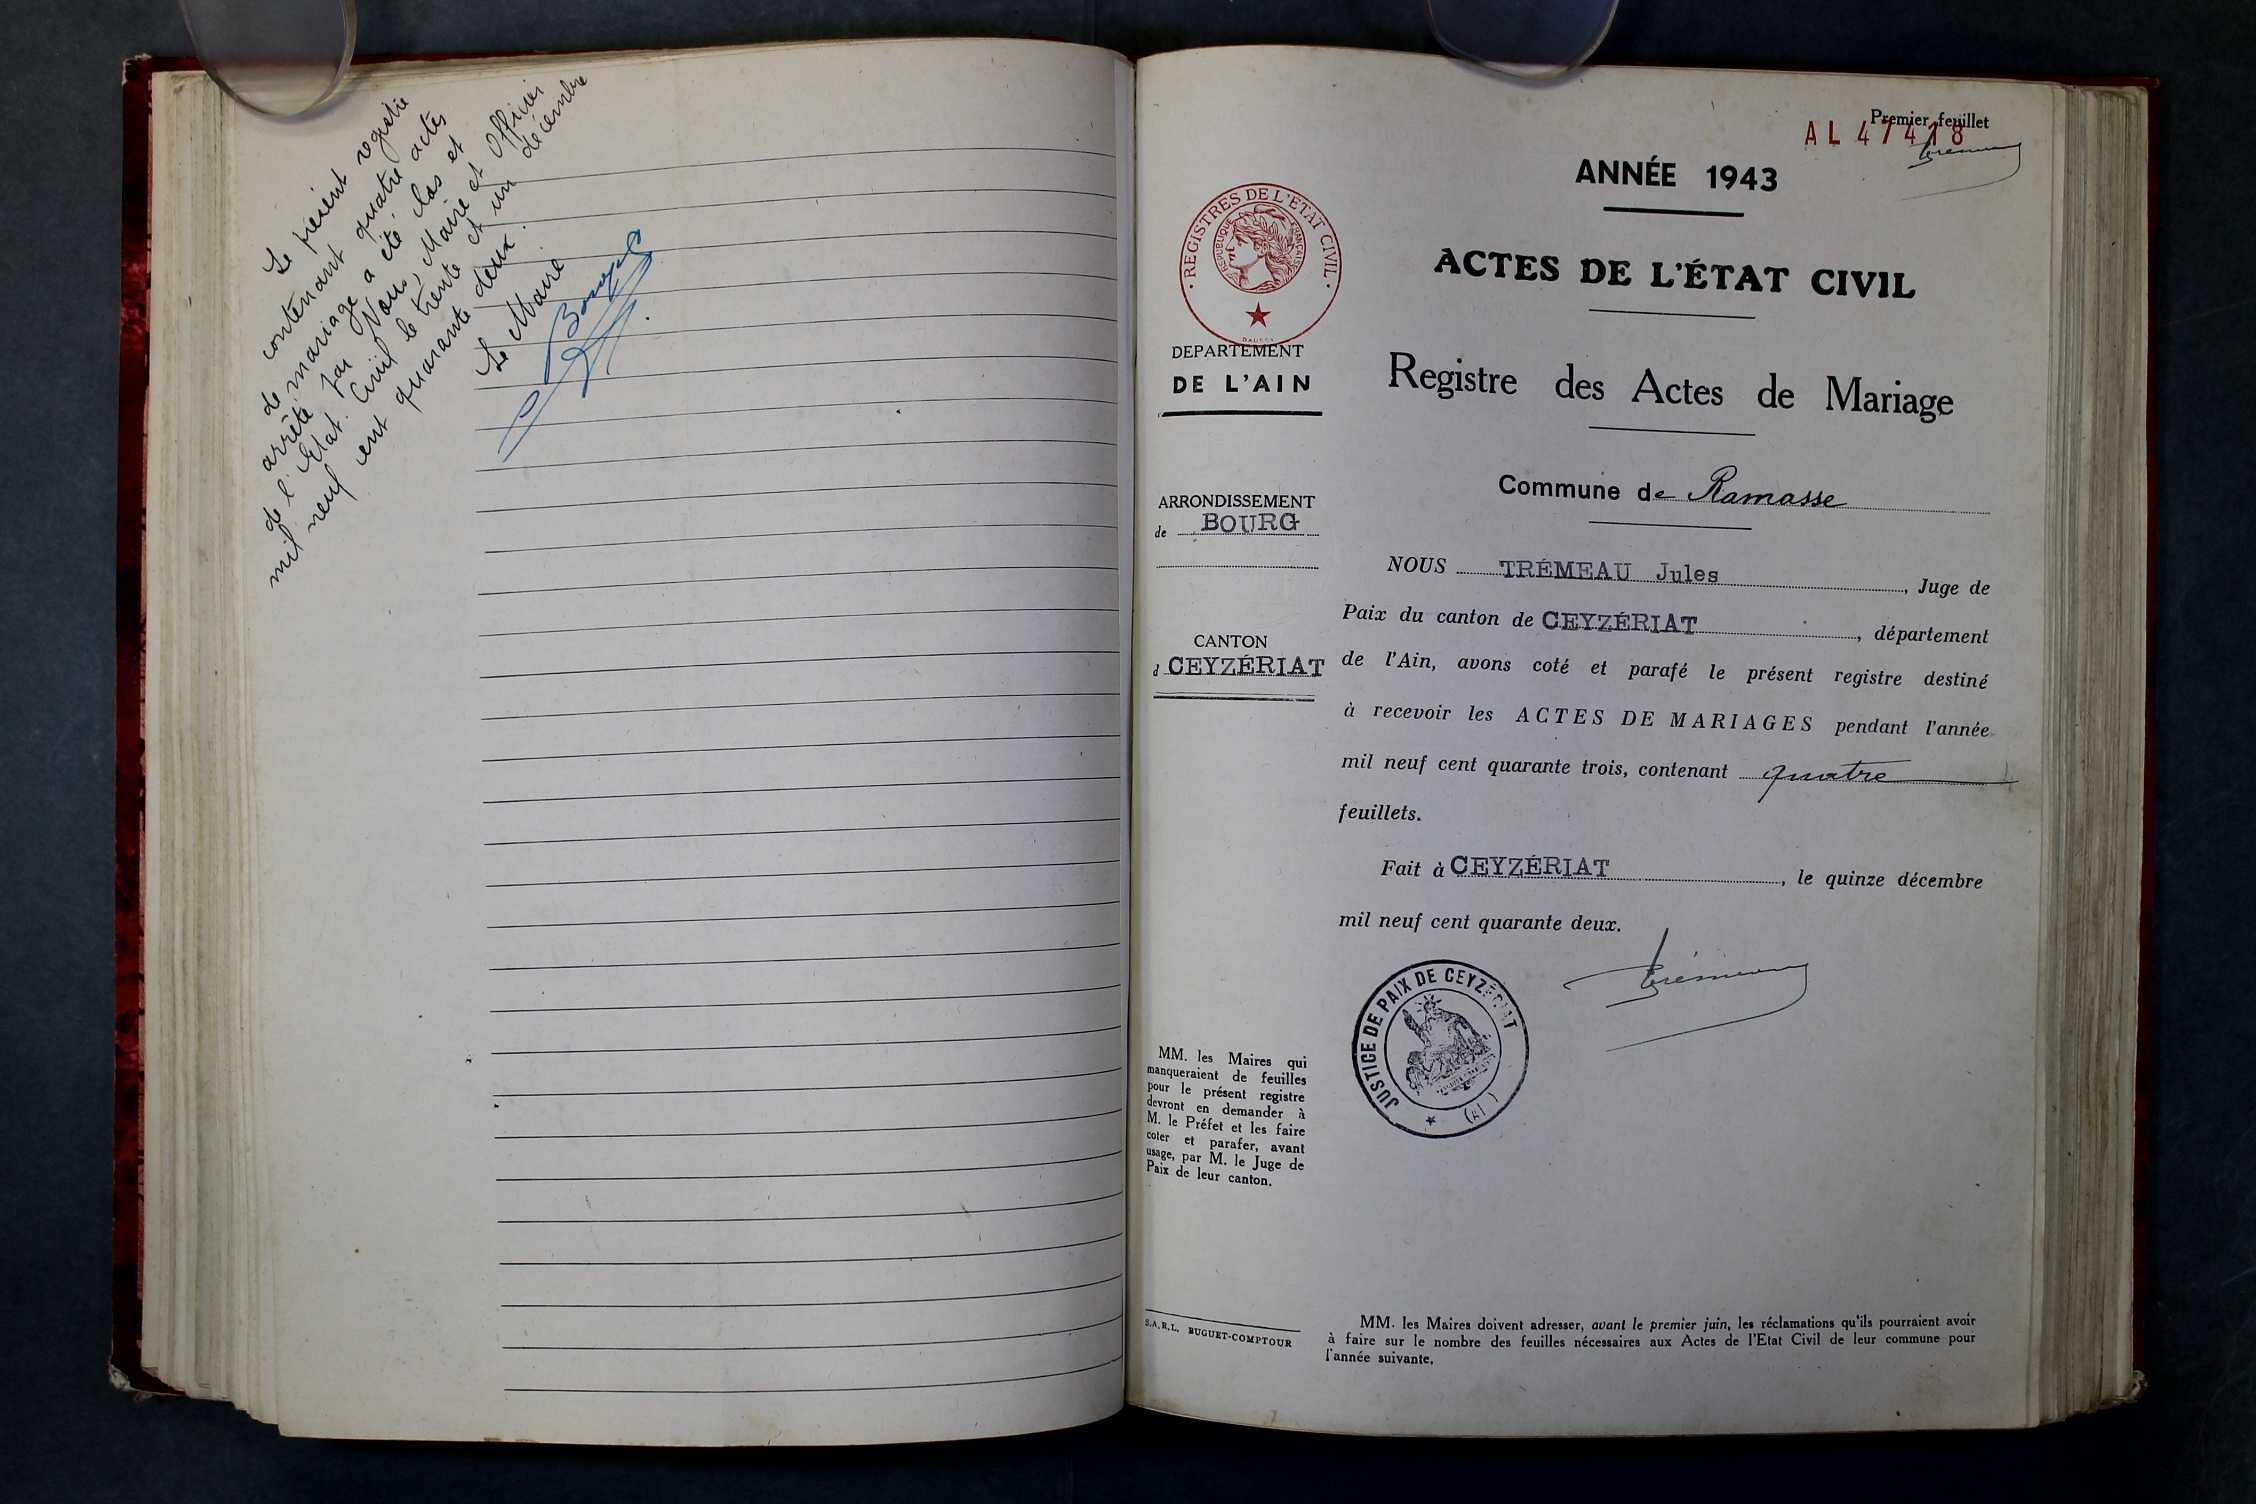 Le présent registre
contenant quatre actes
de mariage a été clos et
arrêté par Nous, Maire et Officier
de l'Etat. Civil le trente et un décembre
mil neuf cent quarante deux.
Le Maire
Premier feuillet
AL 47418
ANNÉE 1943
ACTES DE L'ÉTAT CIVIL
Registre des Actes de Mariage
Commune de Ramasse
· REGISTRES DE L'ETAT CIVIL ·
REPUBLIQUE FRANÇAISE
DEPARTEMENT
DE L'AIN
ARRONDISSEMENT
de BOURG
CANTON
d CEYZÉRIAT
NOUS TRÉMEAU Jules, Juge de
Paix du canton de CEYZÉRIAT, département
de l'Ain, avons coté et parafé le présent registre destiné
à recevoir les ACTES DE MARIAGES pendant l'année
mil neuf cent quarante trois, contenant quatre
feuillets.
Fait à CEYZÉRIAT, le quinze décembre
mil neuf cent quarante deux.
JUSTICE DE PAIX DE CEYZÉRIAT
MM. les Maires qui
manqueraient de feuilles
pour le présent registre
devront en demander à
M. le Préfet et les faire
coter et parafer, avant
usage, par M. le Juge de
Paix de leur canton.
S.A.R.L. BUGUET-COMPTOUR
MM. les Maires doivent adresser, avant le premier juin, les réclamations qu'ils pourraient avoir
à faire sur le nombre des feuilles nécessaires aux Actes de l'Etat Civil de leur commune pour
l'année suivante.